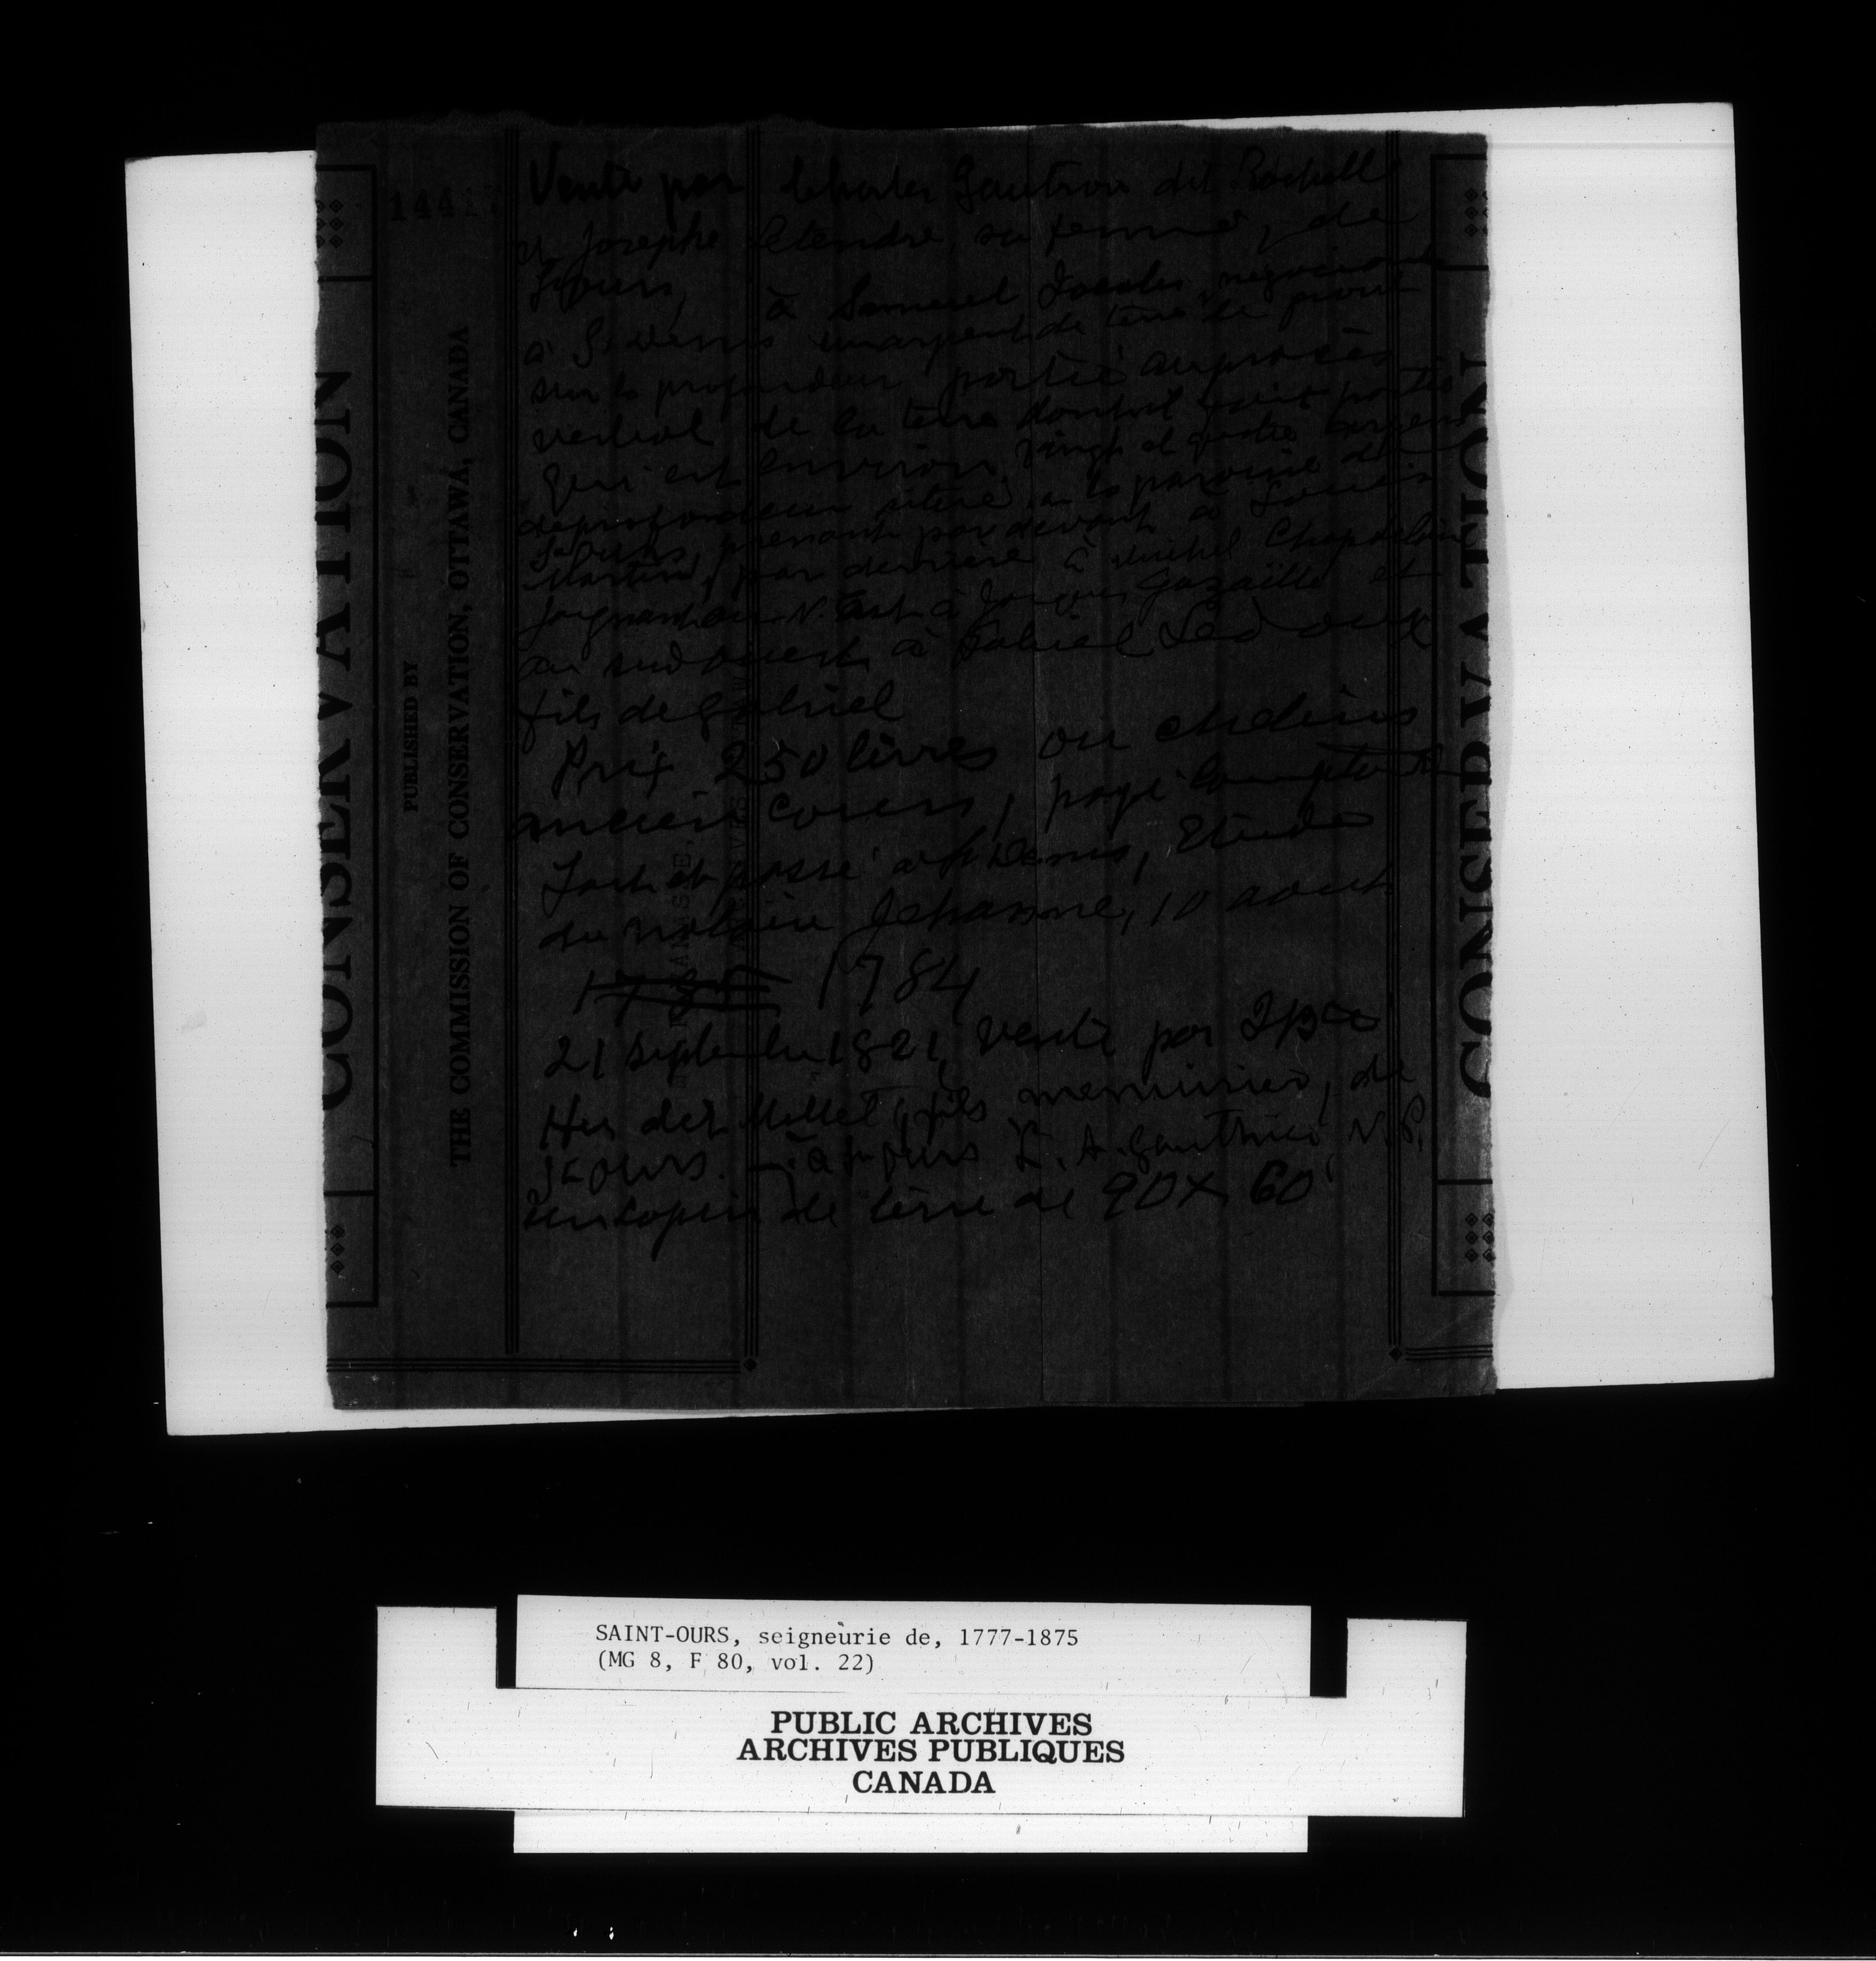 14417
Vente par Charles Gautron dit Rochelle
et Josephe Letendre, sa femme, de
St Ours, à Samuel Jacobs, négociant
à St Denis un arpent de terre de front
sur la profondeur portée au procès
verbal de la terre dont il fait partie
qui est environ vingt et quatre arpens
de profondeur située en la paroisse de
St Ours, prenant par devant à Louis
Martin, par derrière à Michel Chapdelaine
joignant au N. Est à Jacques Gazaille et
au sud ouest à Gabriel Ledoux
fils de Gabriel
Prix 250 livres ou chelins
ancien cours, payé comptant
Fait et passé à St Denis, Etude
du notaire Jehanne, 10 aout
1784
21 septembre 1821, vente par
Hus dit Millet, fils menuisier, de
St Ours. — à L. A. Gauthier, N.P.
un lopin de terre de 90 x 60
CONSERVATION
PUBLISHED BY
THE COMMISSION OF CONSERVATION, OTTAWA, CANADA
CONSERVATION
SAINT-OURS, seigneurie de, 1777-1875
(MG 8, F 80, vol. 22)
PUBLIC ARCHIVES
ARCHIVES PUBLIQUES
CANADA